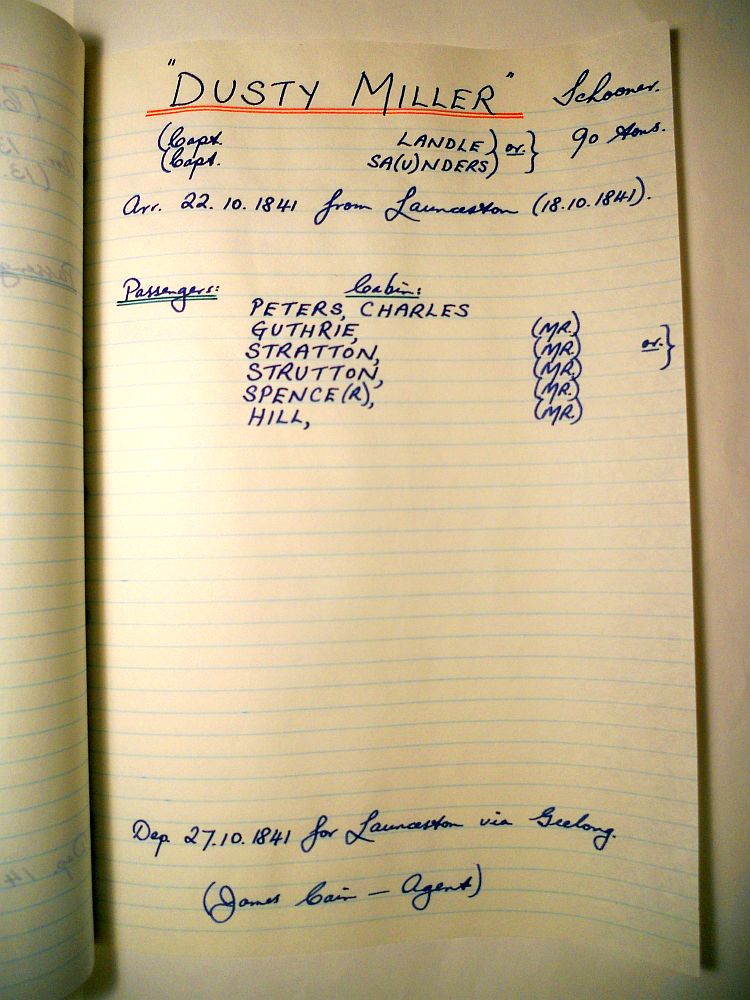 "DUSTY MILLER" Schooner.
(Capt. LANDLE) or } 90 tons.
(Capt. SA(U)NDERS)
Arr. 22.10.1841 from Launceston (18.10.1841).
Passengers: Cabin:
PETERS, CHARLES
GUTHRIE, (MR.)
STRATTON, (MR.) or }
STRUTTON, (MR.)
SPENCE(R), (MR.)
HILL, (MR.)
Dep 27.10.1841 for Launceston via Geelong.
(James Cain — Agent)